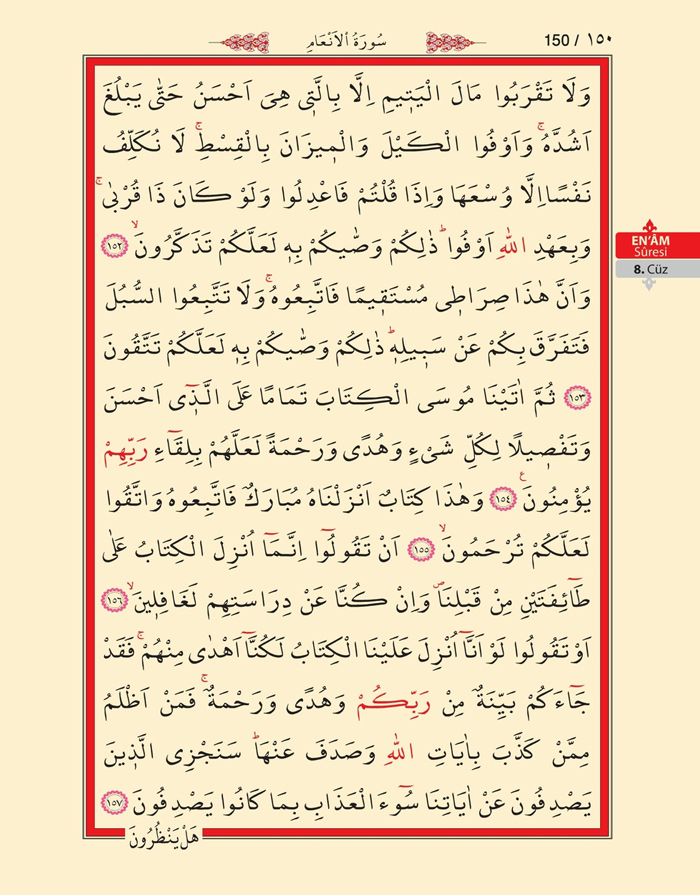 سُورَةُ الْاَنْعَامِ
150 / ١٥٠
وَلَا تَقْرَبُوا مَالَ الْيَت۪يمِ اِلَّا بِالَّت۪ي هِيَ اَحْسَنُ حَتّٰى يَبْلُغَ
اَشُدَّهُۚ وَاَوْفُوا الْكَيْلَ وَالْم۪يزَانَ بِالْقِسْطِۚ لَا نُكَلِّفُ
نَفْسًا اِلَّا وُسْعَهَا وَاِذَا قُلْتُمْ فَاعْدِلُوا وَلَوْ كَانَ ذَا قُرْبٰىۚ
وَبِعَهْدِ اللّٰهِ اَوْفُواۜ ذٰلِكُمْ وَصّٰيكُمْ بِه۪ لَعَلَّكُمْ تَذَكَّرُونَۙ ١٥٢
وَاَنَّ هٰذَا صِرَاط۪ي مُسْتَق۪يمًا فَاتَّبِعُوهُۚ وَلَا تَتَّبِعُوا السُّبُلَ
فَتَفَرَّقَ بِكُمْ عَنْ سَب۪يلِه۪ۜ ذٰلِكُمْ وَصّٰيكُمْ بِه۪ لَعَلَّكُمْ تَتَّقُونَ
١٥٣ ثُمَّ اٰتَيْنَا مُوسَى الْكِتَابَ تَمَامًا عَلَى الَّذ۪ٓي اَحْسَنَ
وَتَفْص۪يلًا لِكُلِّ شَيْءٍ وَهُدًى وَرَحْمَةً لَعَلَّهُمْ بِلِقَٓاءِ رَبِّهِمْ
يُؤْمِنُونَ۟ ١٥٤ وَهٰذَا كِتَابٌ اَنْزَلْنَاهُ مُبَارَكٌ فَاتَّبِعُوهُ وَاتَّقُوا
لَعَلَّكُمْ تُرْحَمُونَۙ ١٥٥ اَنْ تَقُولُٓوا اِنَّمَٓا اُنْزِلَ الْكِتَابُ عَلٰى
طَٓائِفَتَيْنِ مِنْ قَبْلِنَاۖ وَاِنْ كُنَّا عَنْ دِرَاسَتِهِمْ لَغَافِل۪ينَۙ ١٥٦
اَوْ تَقُولُوا لَوْ اَنَّٓا اُنْزِلَ عَلَيْنَا الْكِتَابُ لَكُنَّٓا اَهْدٰى مِنْهُمْۚ فَقَدْ
جَٓاءَكُمْ بَيِّنَةٌ مِنْ رَبِّكُمْ وَهُدًى وَرَحْمَةٌۚ فَمَنْ اَظْلَمُ
مِمَّنْ كَذَّبَ بِاٰيَاتِ اللّٰهِ وَصَدَفَ عَنْهَاۜ سَنَجْزِي الَّذ۪ينَ
يَصْدِفُونَ عَنْ اٰيَاتِنَا سُٓوءَ الْعَذَابِ بِمَا كَانُوا يَصْدِفُونَ ١٥٧
هَلْ يَنْظُرُونَ
EN'ÂM
Sûresi
8. Cüz